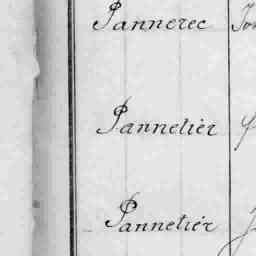 Pannerec
Pannetier
Pannetiér